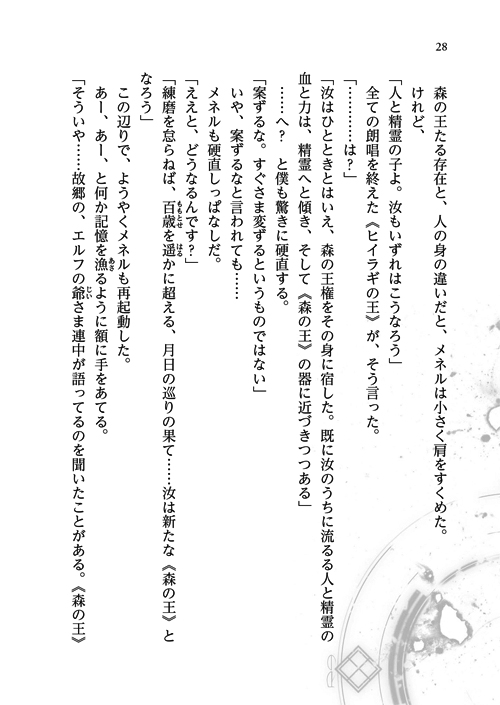 28
森の王たる存在と、人の身の違いだと、メネルは小さく肩をすくめた。
けれど、
「人と精霊の子よ。汝もいずれはこうなろう」
全ての朗唱を終えた《ヒイラギの王》が、そう言った。
「…………は？」
「汝はひとときとはいえ、森の王権をその身に宿した。既に汝のうちに流るる人と精霊の
血と力は、精霊へと傾き、そして《森の王》の器に近づきつつある」
……へ？　と僕も驚きに硬直する。
「案ずるな。すぐさま変ずるというものではない」
いや、案ずるなと言われても……
メネルも硬直しっぱなしだ。
「ええと、どうなるんです？」
「練磨を怠らねば、百歳を遥かに超える、月日の巡りの果て……汝は新たな《森の王》と
なろう」
この辺りで、ようやくメネルも再起動した。
あー、あー、と何か記憶を漁るように額に手をあてる。
「そういや……故郷の、エルフの爺さま連中が語ってるのを聞いたことがある。《森の王》